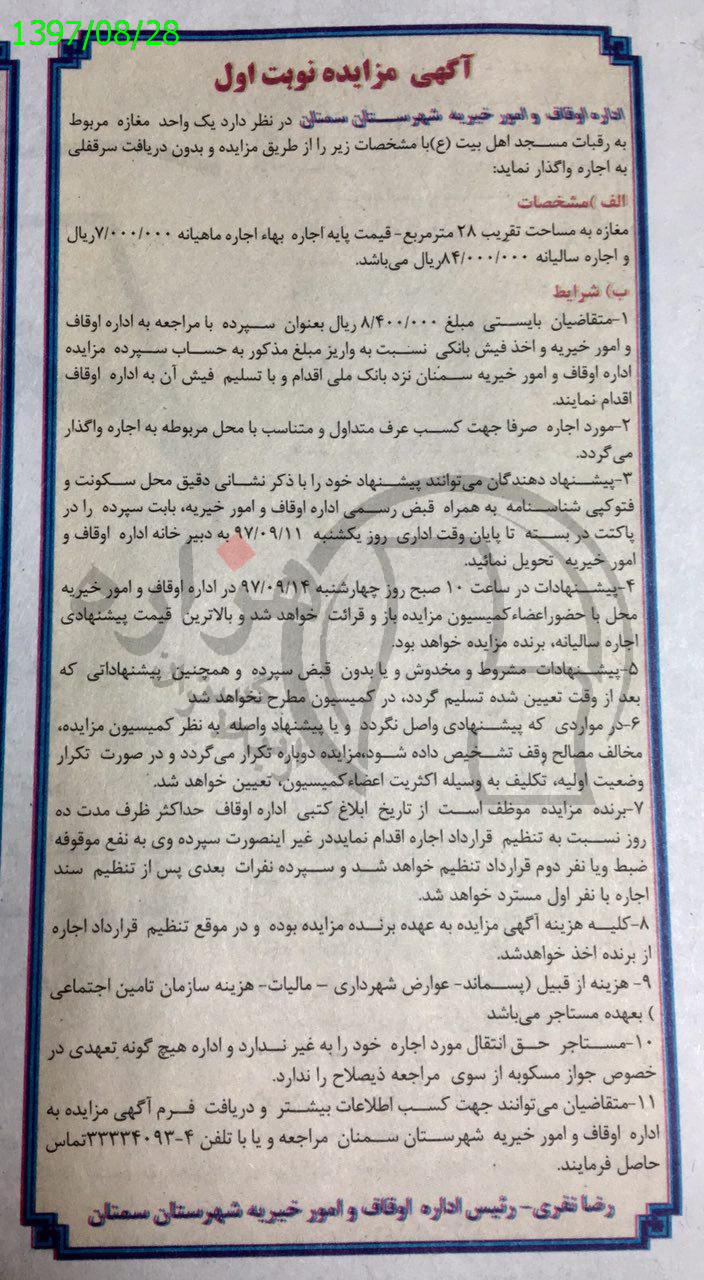 1397/08/28
آگهی مزایده نوبت اول
اداره اوقاف و امور خیریه شهرستان سمنان در نظر دارد یک واحد مغازه مربوط
به رقبات مسجد اهل بیت (ع)با مشخصات زیر را از طریق مزایده و بدون دریافت سرقفلی
به اجاره واگذار نماید:
الف )مشخصات
مغازه به مساحت تقریب ۲۸ مترمربع- قیمت پایه اجاره بهاء اجاره ماهیانه ۷/۰۰۰/۰۰۰ریال
و اجاره سالیانه ۸۴/۰۰۰/۰۰۰ریال می‌باشد.
ب) شرایط
۱-متقاضیان بایستی مبلغ ۸/۴۰۰/۰۰۰ ریال بعنوان سپرده با مراجعه به اداره اوقاف
و امور خیریه و اخذ فیش بانکی نسبت به واریز مبلغ مذکور به حساب سپرده مزایده
اداره اوقاف و امور خیریه سمنان نزد بانک ملی اقدام و با تسلیم فیش آن به اداره اوقاف
اقدام نمایند.
۲-مورد اجاره صرفا جهت کسب عرف متداول و متناسب با محل مربوطه به اجاره واگذار
می‌گردد.
۳-پیشنهاد دهندگان می‌توانند پیشنهاد خود را با ذکر نشانی دقیق محل سکونت و
فتوکپی شناسنامه به همراه قبض رسمی اداره اوقاف و امور خیریه، بابت سپرده را در
پاکتت در بسته تا پایان وقت اداری روز یکشنبه ۹۷/۰۹/۱۱ به دبیر خانه اداره اوقاف و
امور خیریه تحویل نمائید.
۴-پیشنهادات در ساعت ۱۰ صبح روز چهارشنبه ۹۷/۰۹/۱۴ در اداره اوقاف و امور خیریه
محل با حضوراعضاءکمیسیون مزایده باز و قرائت خواهد شد و بالاترین قیمت پیشنهادی
اجاره سالیانه، برنده مزایده خواهد بود.
۵-پیشنهادات مشروط و مخدوش و یا بدون قبض سپرده و همچنین پیشنهاداتی که
بعد از وقت تعیین شده تسلیم گردد، در کمیسیون مطرح نخواهد شد
۶-در مواردی که پیشنهادی واصل نگردد و یا پیشنهاد واصله به نظر کمیسیون مزایده،
مخالف مصالح وقف تشخیص داده شود،مزایده دوباره تکرار می‌گردد و در صورت تکرار
وضعیت اولیه، تکلیف به وسیله اکثریت اعضاءکمیسیون، تعیین خواهد شد.
۷-برنده مزایده موظف است از تاریخ ابلاغ کتبی اداره اوقاف حداکثر ظرف مدت ده
روز نسبت به تنظیم قرارداد اجاره اقدام نمایددر غیر اینصورت سپرده وی به نفع موقوفه
ضبط ویا نفر دوم قرارداد تنظیم خواهد شد و سپرده نفرات بعدی پس از تنظیم سند
اجاره با نفر اول مسترد خواهد شد.
۸-کلیه هزینه آگهی مزایده به عهده برنده مزایده بوده و در موقع تنظیم قرارداد اجاره
از برنده اخذ خواهدشد.
۹- هزینه از قبیل (پسماند- عوارض شهرداری – مالیات- هزینه سازمان تامین اجتماعی
) بعهده مستاجر می‌باشد
۱۰-مستاجر حق انتقال مورد اجاره خود را به غیر ندارد و اداره هیچ گونه تعهدی در
خصوص جواز مسکوبه از سوی مراجعه ذیصلاح را ندارد.
۱۱-متقاضیان می‌توانند جهت کسب اطلاعات بیشتر و دریافت فرم آگهی مزایده به
اداره اوقاف و امور خیریه شهرستان سمنان مراجعه و یا با تلفن ۴-۳۳۳۳۴۰۹۳تماس
حاصل فرمایند.
رضا نقری- رئیس اداره اوقاف و امور خیریه شهرستان سمنان